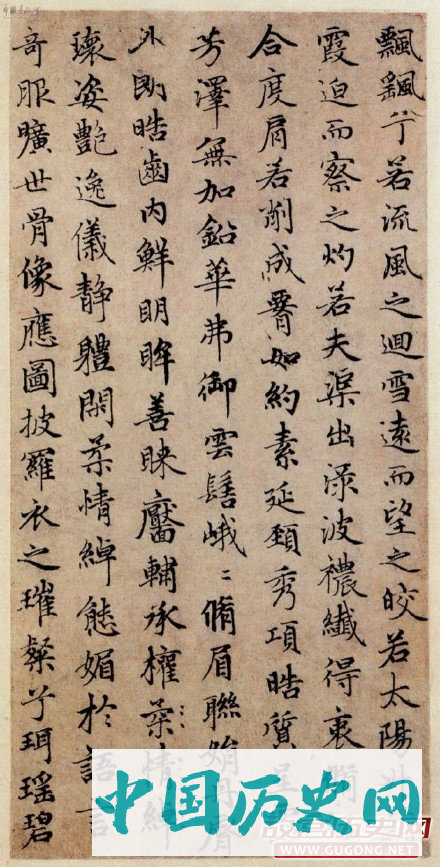 飄飖兮若流風之迴雪遠而望之皎若太陽
霞迫而察之灼若夫渠出淥波襛纖得衷
合度肩若削成腰如約素延頸秀項皓質
芳澤無加鉛華弗御雲髻峨〻脩眉聯娟丹脣
外朗皓齒內鮮明眸善睞靨輔承權柔情綽
瓌姿艷逸儀靜體閑柔情綽態媚於語言
奇服曠世骨像應圖披羅衣之璀粲兮珥瑤碧
中国历史网
WWW.GUGONG.NET